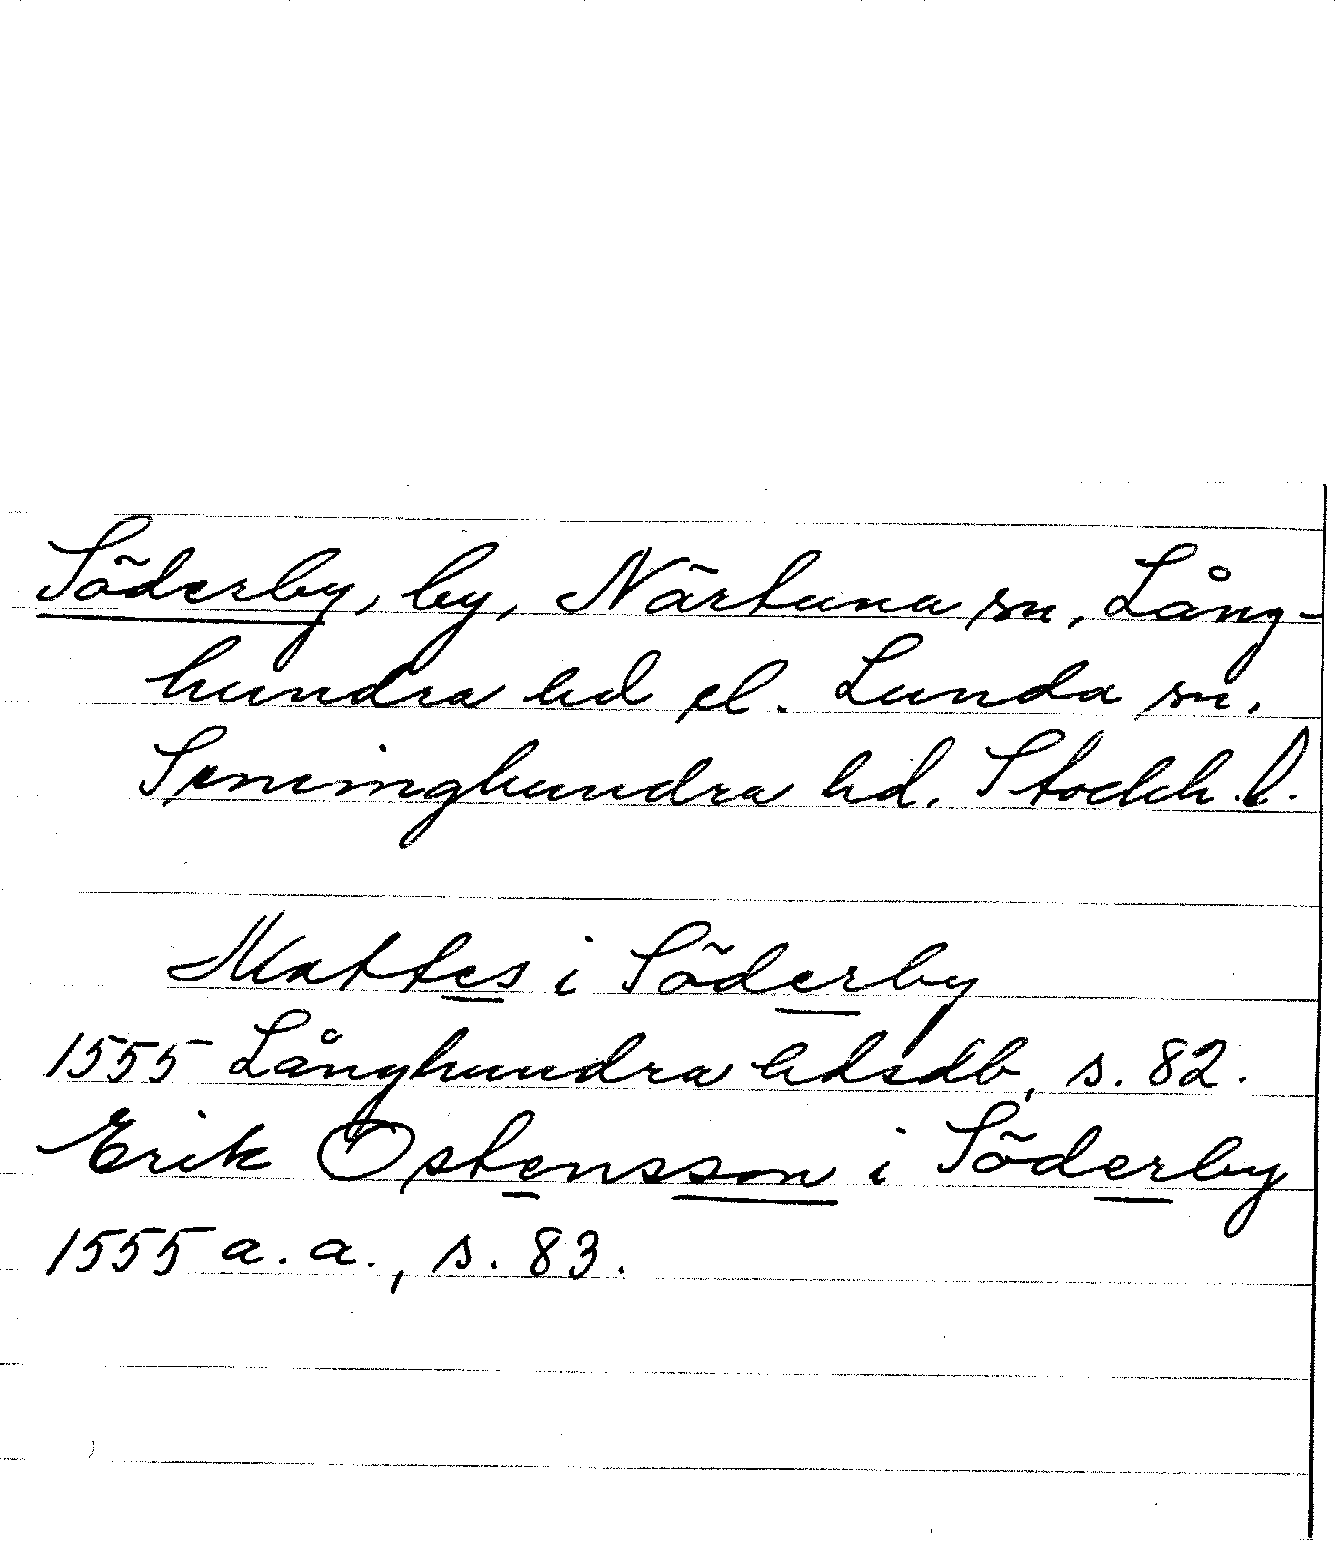 Söderby, by, Närtuna sn, Lång-
hundra hd el. Lunda sn.
Seminghundra hd. Stockh. l.
Mattes i Söderby
1555 Långhundra hdsdb, s. 82.
Erik Östensson i Söderby
1555 a. a., s. 83.